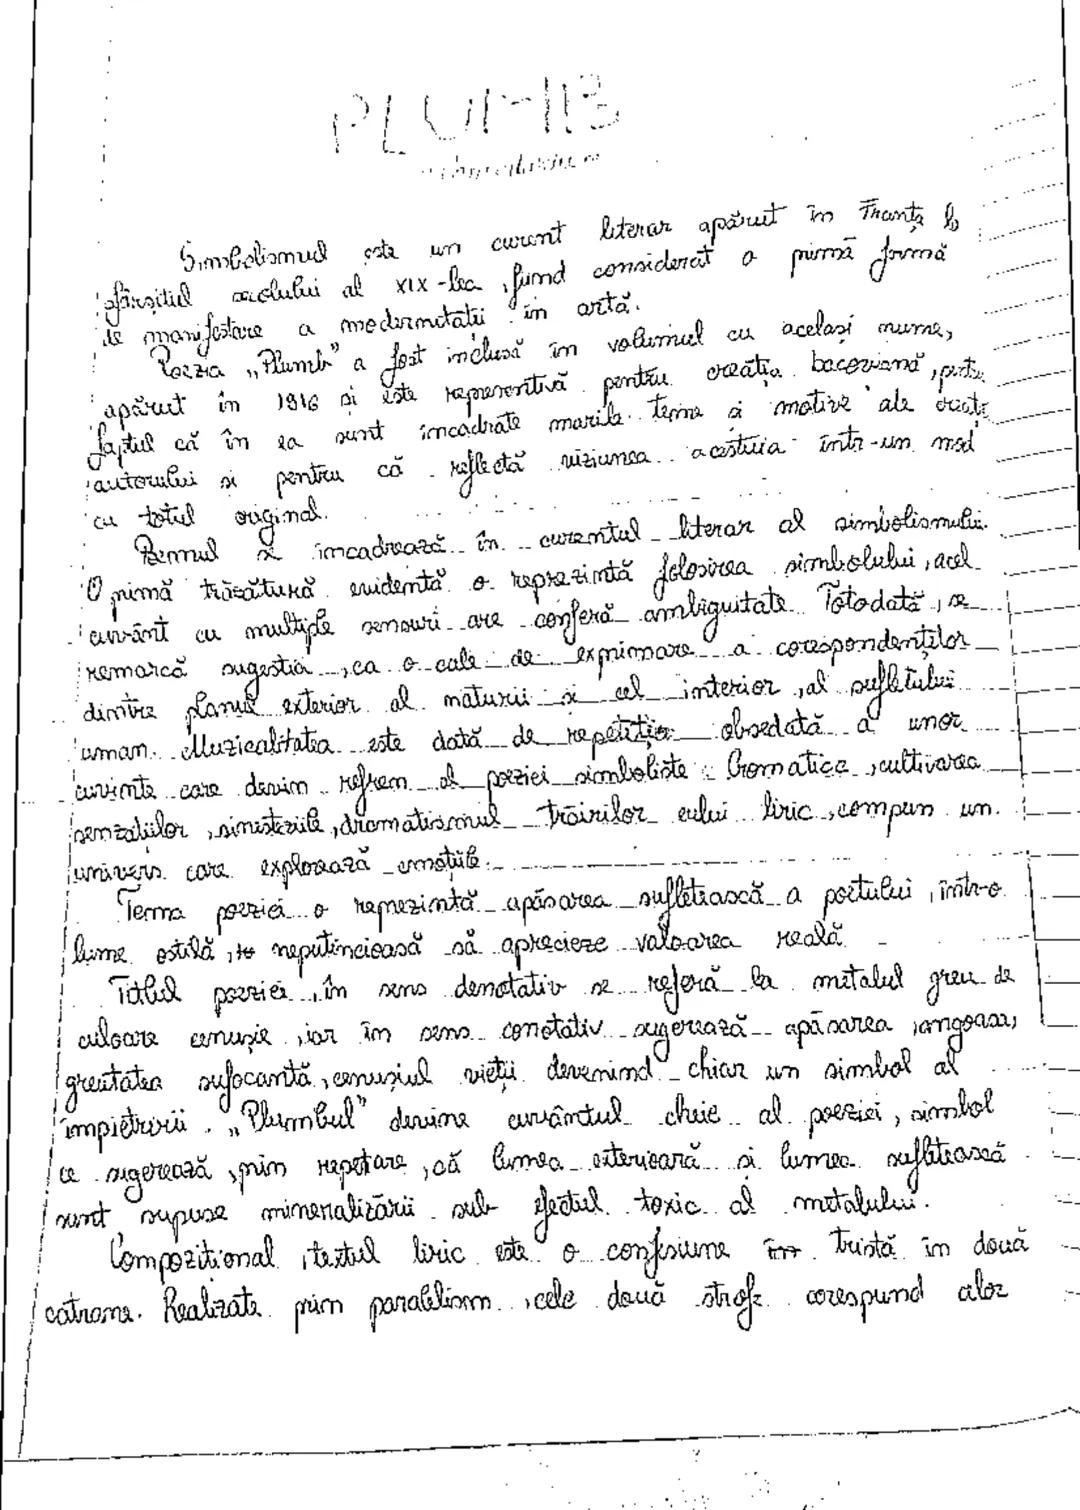 PLUMB
Simbolismul este un curent literar apărut în Franța la
sfârșitul secolului al XIX-lea, fiind considerat o primă formă
de manifestare a modernității în artă.
Poezia „Plumb" a fost inclusă în volumul cu același nume,
apărut în 1916 și este reprezentivă pentru creația bacoviană, pentru
faptul că în ea sunt încadrate marile teme și motive ale
autorului și pentru că reflectă viziunea acestuia într-un mod
cu totul original.
Poemul se încadrează în curentul literar al simbolismului.
O primă trăsătură evidentă o reprezintă folosirea simbolului, acel
cuvânt cu multiple sensuri care conferă ambiguitate. Totodată, se
remarcă sugestia, ca o cale de exprimare a corespondențelor
dintre planul exterior al naturii și cel interior, al sufletului
uman. Muzicalitatea este dată de repetiția obsedată a unor
cuvinte care devin refren al poeziei simboliste. Cromatica, cultivarea
senzațiilor, sinesteziile, dramatismul trăirilor eului liric, compun un
univers care explorează emoțiile.
Tema poeziei o reprezintă apăsarea sufletească a poetului, într-o
lume ostilă, neputincioasă să aprecieze valoarea reală
Titlul poeziei, în sens denotativ se referă la metalul greu de
culoare cenușie, iar în sens conotativ sugerează apăsarea, angoasa,
greutatea sufocantă, cenușiul vieții devenind chiar un simbol al
împietririi. „Plumbul" devine cuvântul cheie al poeziei, simbol
ce sugerează, prin repetare, că lumea exterioară și lumea sufletească
sunt supuse mineralizării sub efectul toxic al metalului.
Compozițional, textul liric este o confesiune tristă în două
catrene. Realizate prin paralelism, cele două strofe corespund alor